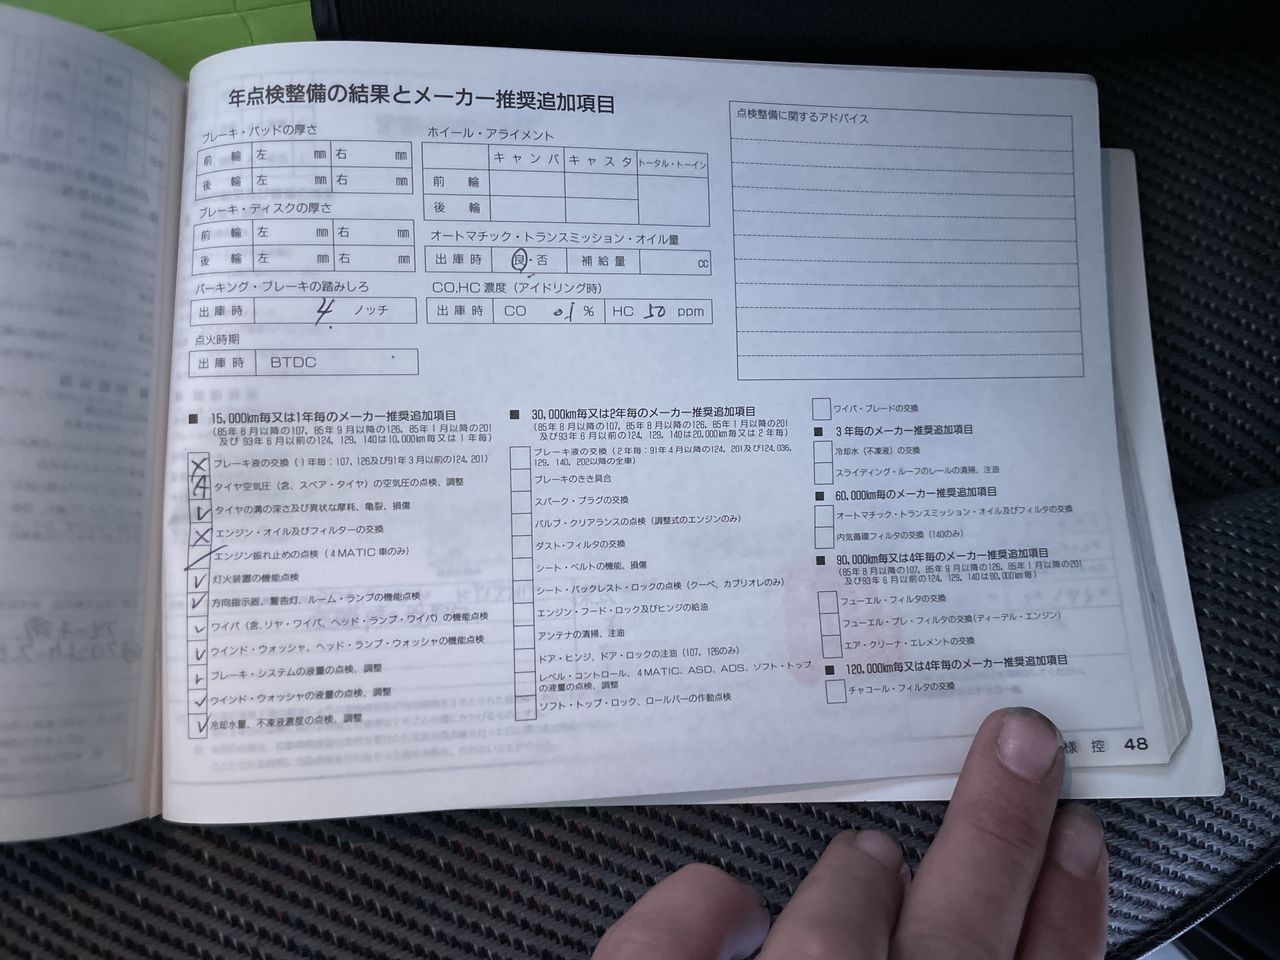 年点検整備の結果とメーカー推奨追加項目
ブレーキ・パッドの厚さ
前輪 左 mm 右 mm
後輪 左 mm 右 mm
ブレーキ・ディスクの厚さ
前輪 左 mm 右 mm
後輪 左 mm 右 mm
パーキング・ブレーキの踏みしろ
出庫時 4 ノッチ
点火時期
出庫時 BTDC
ホイール・アライメント
キャンバ キャスタ トータル・トーイン
前輪
後輪
オートマチック・トランスミッション・オイル量
出庫時 良・否 補給量 cc
CO,HC濃度(アイドリング時)
出庫時 CO 0.1 % HC 50 ppm
点検整備に関するアドバイス
■ 15,000km毎又は1年毎のメーカー推奨追加項目
(85年8月以降の107、85年9月以降の126、85年1月以降の201
及び93年6月以前の124、129、140は10,000km毎又は1年毎)
ブレーキ液の交換(1年毎:107、126及び91年3月以前の124、201)
タイヤ空気圧(含、スペア・タイヤ)の空気圧の点検、調整
タイヤの溝の深さ及び異状な摩耗、亀裂、損傷
エンジン・オイル及びフィルターの交換
エンジン振れ止めの点検(4MATIC車のみ)
灯火装置の機能点検
方向指示器、警告灯、ルーム・ランプの機能点検
ワイパ(含、リヤ・ワイパ、ヘッド・ランプ・ワイパ)の機能点検
ウインド・ウォッシャ、ヘッド・ランプ・ウォッシャの機能点検
ブレーキ・システムの液量の点検、調整
ウインド・ウォッシャの液量の点検、調整
冷却水量、不凍液濃度の点検、調整
■ 30,000km毎又は2年毎のメーカー推奨追加項目
(85年8月以降の107、85年9月以降の126、85年1月以降の201
及び93年6月以前の124、129、140は20,000km毎又は2年毎)
ブレーキ液の交換(2年毎:91年4月以降の124、201及び124.036、
129、140、202以降の全車)
ブレーキのきき具合
スパーク・プラグの交換
バルブ・クリアランスの点検(調整式のエンジンのみ)
ダスト・フィルタの交換
シート・ベルトの機能、損傷
シート・バックレスト・ロックの点検(クーペ、カブリオレのみ)
エンジン・フード・ロック及びヒンジの給油
アンテナの清掃、注油
ドア・ヒンジ、ドア・ロックの注油(107、126のみ)
レベル・コントロール、4MATIC、ASD、ADS、ソフト・トップ
の液量の点検、調整
ソフト・トップ・ロック、ロールバーの作動点検
ワイパ・ブレードの交換
■ 3年毎のメーカー推奨追加項目
冷却水(不凍液)の交換
スライディング・ルーフのレールの清掃、注油
■ 60,000km毎のメーカー推奨追加項目
オートマチック・トランスミッション・オイル及びフィルタの交換
内気循環フィルタの交換(140のみ)
■ 90,000km毎又は4年毎のメーカー推奨追加項目
(85年8月以降の107、85年9月以降の126、85年1月以降の201
及び93年6月以前の124、129、140は60,000km毎)
フューエル・フィルタの交換
フューエル・プレ・フィルタの交換(ディーデル・エンジン)
エア・クリーナ・エレメントの交換
■ 120,000km毎又は4年毎のメーカー推奨追加項目
チャコール・フィルタの交換
様 控 48